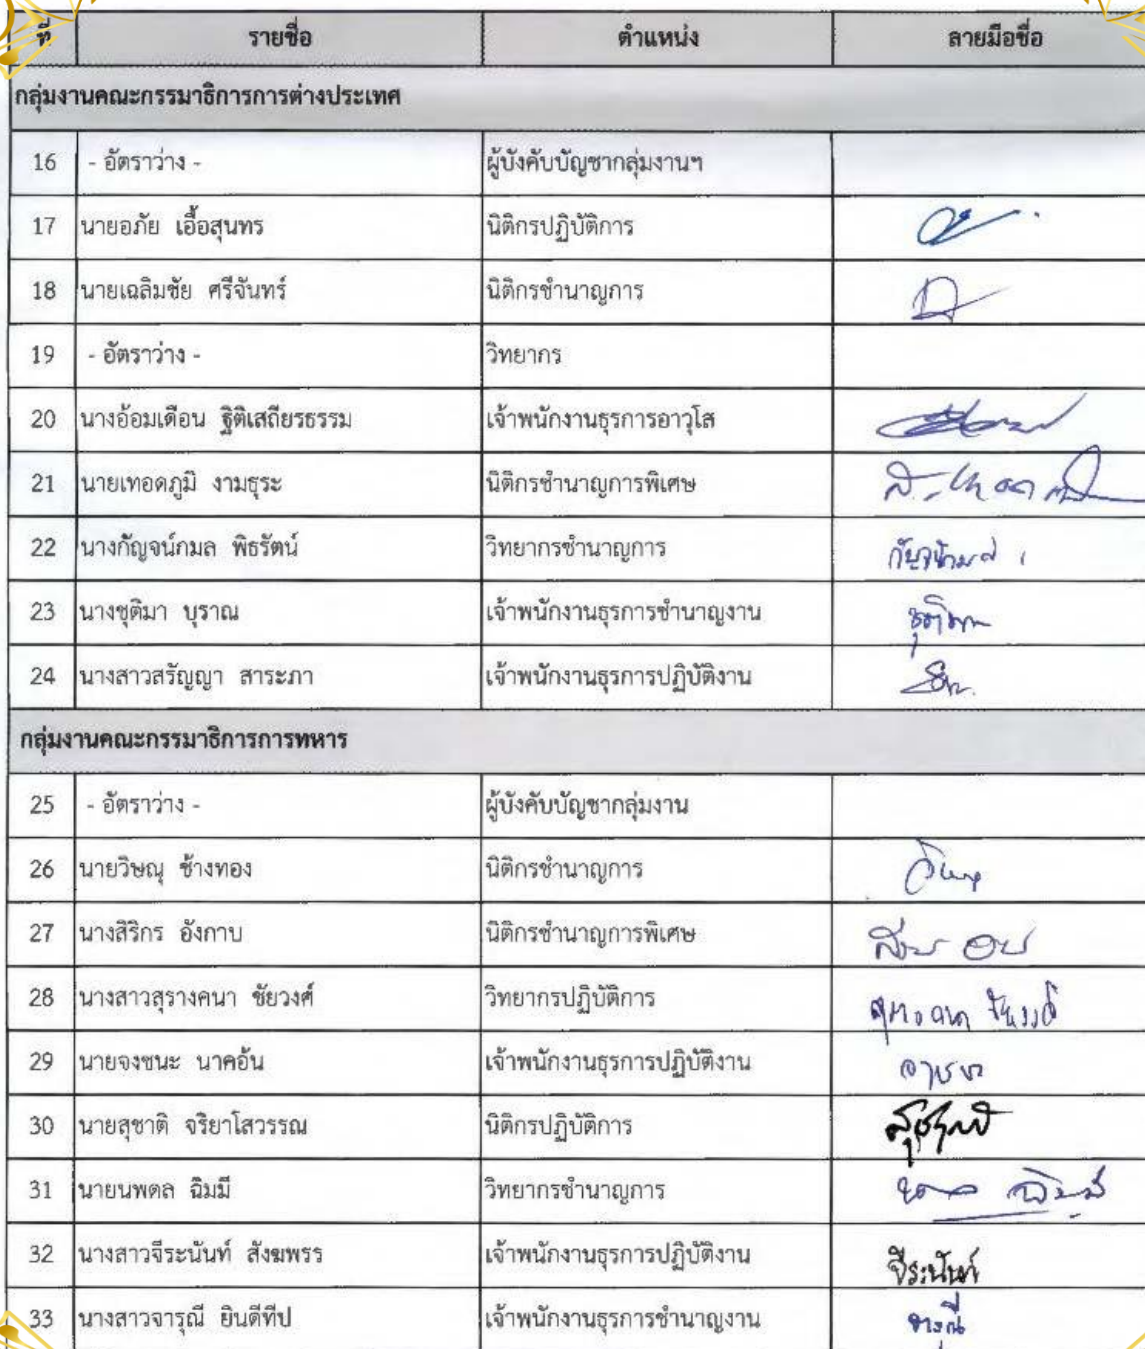 ที่ รายชื่อ ตำแหน่ง ลายมือชื่อ
กลุ่มงานคณะกรรมาธิการการต่างประเทศ
16 - อัตราว่าง - ผู้บังคับบัญชากลุ่มงานฯ
17 นายอภัย เอื้อสุนทร นิติกรปฏิบัติการ
18 นายเฉลิมชัย ศรีจันทร์ นิติกรชำนาญการ
19 - อัตราว่าง - วิทยากร
20 นางอ้อมเดือน ฐิติเสถียรธรรม เจ้าพนักงานธุรการอาวุโส
21 นายเทอดภูมิ งามธุระ นิติกรชำนาญการพิเศษ
22 นางกัญจน์กมล พิธรัตน์ วิทยากรชำนาญการ
23 นางชุติมา บุราณ เจ้าพนักงานธุรการชำนาญงาน ชุติมา
24 นางสาวสรัญญา สาระภา เจ้าพนักงานธุรการปฏิบัติงาน
กลุ่มงานคณะกรรมาธิการการทหาร
25 - อัตราว่าง - ผู้บังคับบัญชากลุ่มงาน
26 นายวิษณุ ช้างทอง นิติกรชำนาญการ
27 นางสิริกร อังกาบ นิติกรชำนาญการพิเศษ
28 นางสาวสุรางคนา ชัยวงศ์ วิทยากรปฏิบัติการ
29 นายจงชนะ นาคอ้น เจ้าพนักงานธุรการปฏิบัติงาน
30 นายสุชาติ จริยาโสวรรณ นิติกรปฏิบัติการ
31 นายนพดล ฉิมมี วิทยากรชำนาญการ
32 นางสาวจีระนันท์ สังฆพรร เจ้าพนักงานธุรการปฏิบัติงาน จีระนันท์
33 นางสาวจารุณี ยินดีทีป เจ้าพนักงานธุรการชำนาญงาน จารุณี